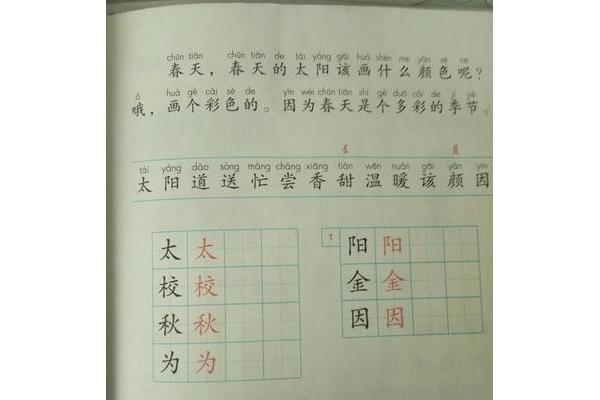 chūn tiān chūn tiān de tài yáng gāi huà shén me yán sè ne
春天，春天的太阳该画什么颜色呢？
ò huà gè cǎi sè de yīn wèi chūn tiān shì gè duō cǎi de jì jié
哦，画个彩色的。因为春天是个多彩的季节。
舌 页
tài yáng dào sòng máng cháng xiāng tián wēn nuǎn gāi yán yīn
太阳道送忙尝香甜温暖该颜因
太太 阝 阳阳
校校 金金
秋秋 因因
为为